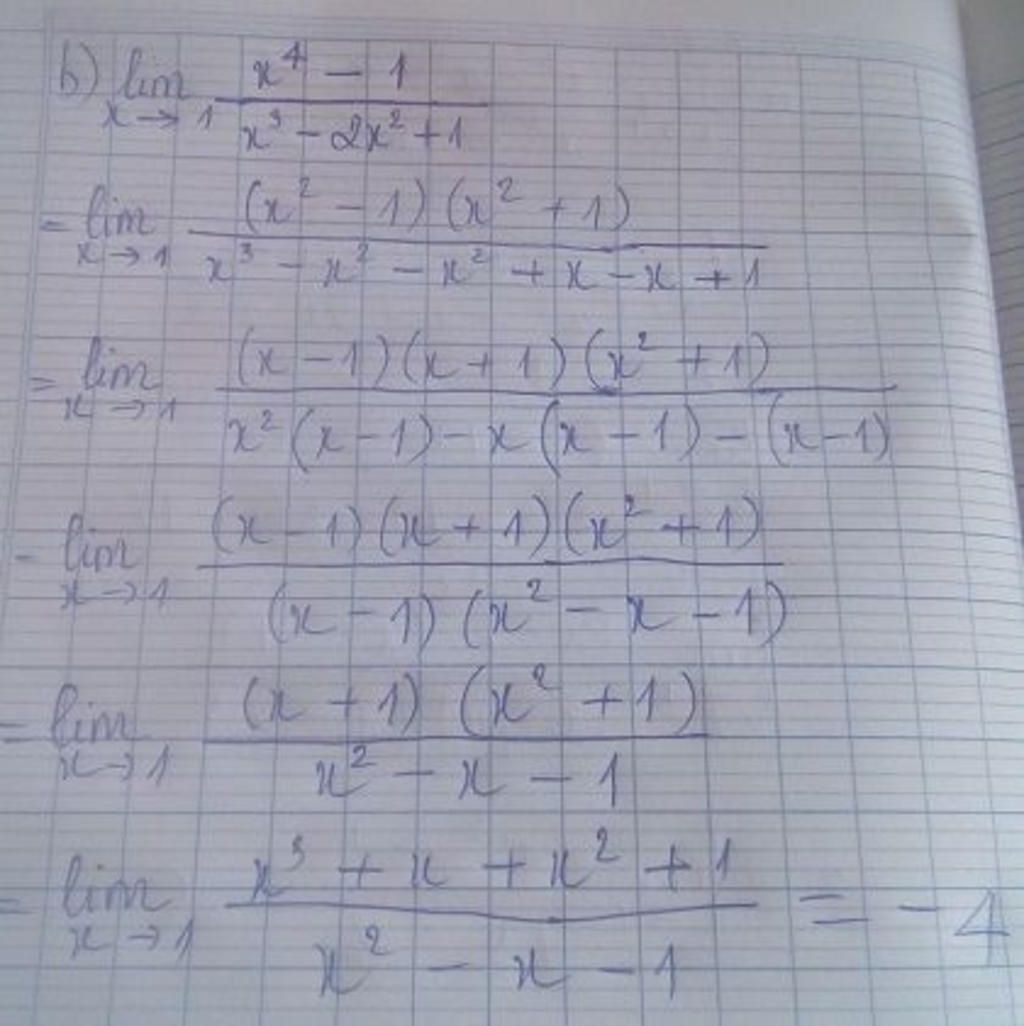 b) lim x→1 (x⁴ - 1)/(x³ - 2x² + 1)
= lim x→1 (x² - 1)(x² + 1)/(x³ - x² - x² + x - x + 1)
= lim x→1 (x - 1)(x + 1)(x² + 1)/(x²(x - 1) - x(x - 1) - (x - 1))
- lim x→1 (x - 1)(x + 1)(x² + 1)/((x - 1)(x² - x - 1))
= lim x→1 (x + 1)(x² + 1)/(x² - x - 1)
= lim x→1 (x³ + x + x² + 1)/(x² - x - 1) = -4